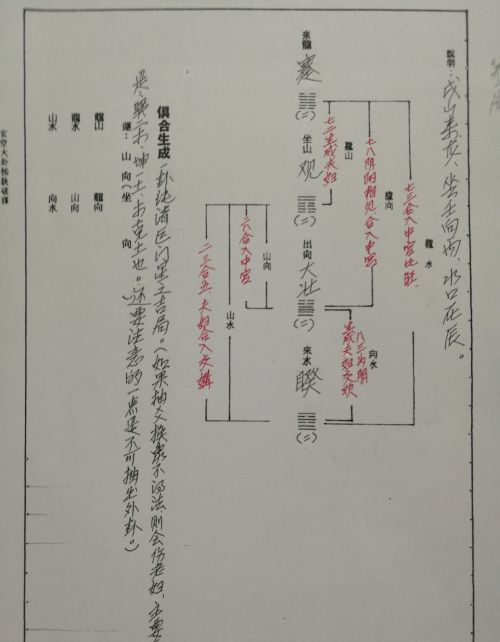 說明：艮山来龙，坐壬向丙，水口在辰。
龍水
七三合入中宫比旺
龍向
七八阴阳相见，合入中宫
龍山
七二生成夫妇
來龍
蹇
(二)
坐山
观
(二)
出向
大壮
(二)
來水
睽
(二)
向水
八三为朋
生成夫妇交欢
山向
二八合入中宫
山水
二三合五，夫妇合入交媾
俱合生成
一卦纯清
吉局。(如果抽爻换象不得法，则会伤老妇，主要
是巽二木，坤一土，木克土也。还要注意的一点是不可抽出外卦。)
運：山向(坐向)
龍山 龍向
龍水 山向
山水 向水
玄空大卦秘訣破譯